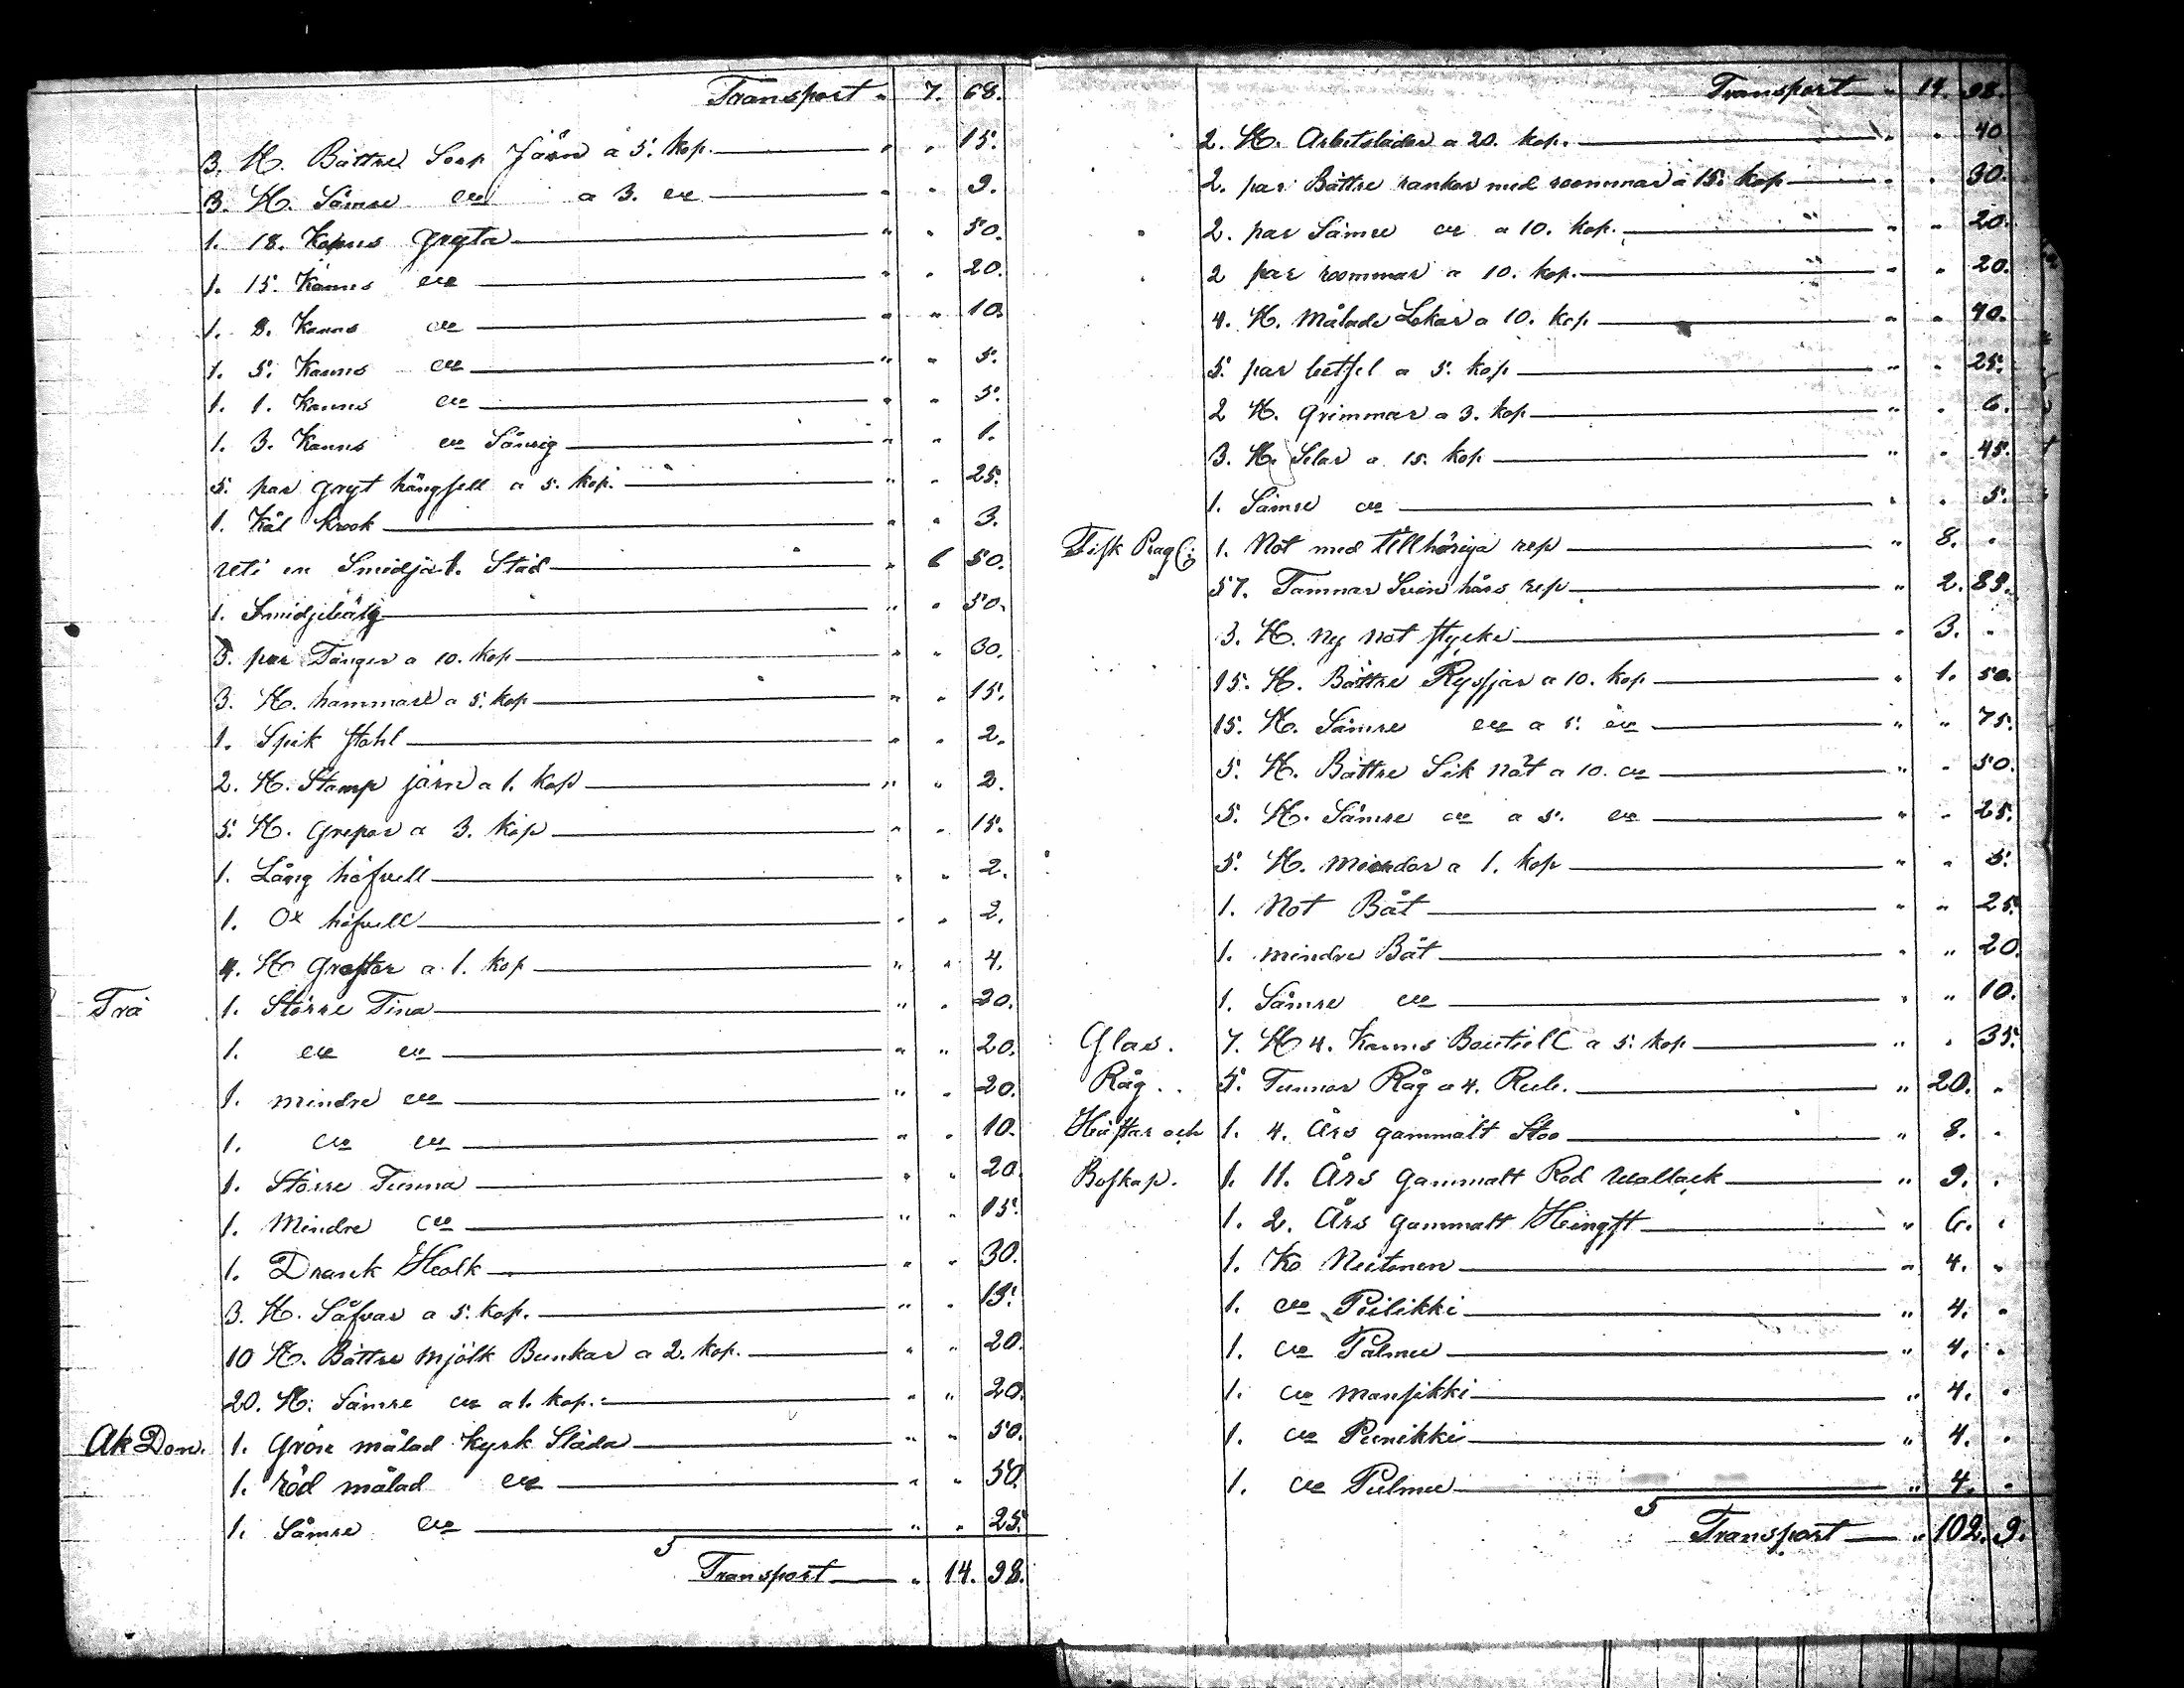 Transport " 7. 68.
3. St. Bättre Järn a 5. kop. " " 15.
3. St. Sämre do a 3. do " " 9.
1. 18. Kanns Gryta " " 50.
1. 15. Kanns do " " 20.
1. 8. Kanns do " " 10.
1. 5. Kanns do " " 5.
1. 1. Kanns do " " 5.
1. 3. Kanns do " " 1.
5. par gryt hängsell a 5. kop. " " 25.
1. Kål Krook " " 3.
uti en Smidja 1. Städ " 6 50.
1. Smidjebälg " " 50.
3. par Tänger a 10. kop " " 30.
3. St. hammare a 5. kop " " 15.
1. Spik stahl " " 2.
2. St. Stamp järn a 1. kop " " 2.
5. St. Grepar a 3. kop " " 15.
1. Lång höfvell " " 2.
1. Ox höfvell " " 2.
4. St Graftar a 1. kop " " 4.
Trä 1. Större Tina " " 20.
1. do do " " 20.
1. mindre do " " 20.
1. do do " " 10.
1. Större Tunna " " 20.
1. Mindre do " " 15.
1. Drank Holk " " 30.
3. St. Såfvar a 5. kop. " " 15.
10 St. Bättre mjölk Bunkar a 2. kop. " " 20.
20. St. Sämre do a 1. kop. " " 20.
Ak Don. 1. Grön målad Kyrk Släda " " 50.
1. röd målad do " " 50.
1. Sämre do " " 25.
Transport " 14. 98.
Transport " 14. 98.
2. St. Arbetslädar a 20. kop. " " 40
2. par Bättre rankor med roommar a 15. kop " " 30.
2. par Sämre do a 10. kop. " " 20.
2 par roommar a 10. kop. " " 20.
4. St. Målade Lokar a 10. kop " " 40.
5. par betsel a 5. kop " " 25.
2 St. Grimmar a 3. kop " " 6.
3. St. Selar a 15. kop " " 45.
1. Sämre do " " 5.
Fisk 1. Not med tillhöriga rep " 8. "
57. Famnar Svin hårs rep " 2. 85.
3. St. ny not stycke " 3. "
15. St. Bättre Ryssjar a 10. kop " 1. 50.
15. St. Sämre do a 5. do " " 75.
5. St. Bättre Sik nät a 10. do " " 50.
5. St. Sämre do a 5. do " " 25.
5. St. Mierdar a 1. kop " " 5.
1. Not Båt " " 25.
1. mindre Båt " " 20.
1. Sämre do " " 10.
Glas. 7. St 4. Kanns Boutiell a 5. kop " " 35.
Råg. 5. Tunnor Råg a 4. Rub. " 20. "
Hästar och 1. 4. Års gammalt Stoo " 8. "
Boskap. 1. 11. Års Gammalt Röd Wallack " 9. "
1. 2. Års gammalt Hingst " 6. "
1. Ko Neitonen " 4. "
1. do Piilikki " 4. "
1. do Palmu " 4. "
1. do Mansikki " 4. "
1. do Punikki " 4. "
1. do Pulmu " 4. "
Transport " 102. 9.